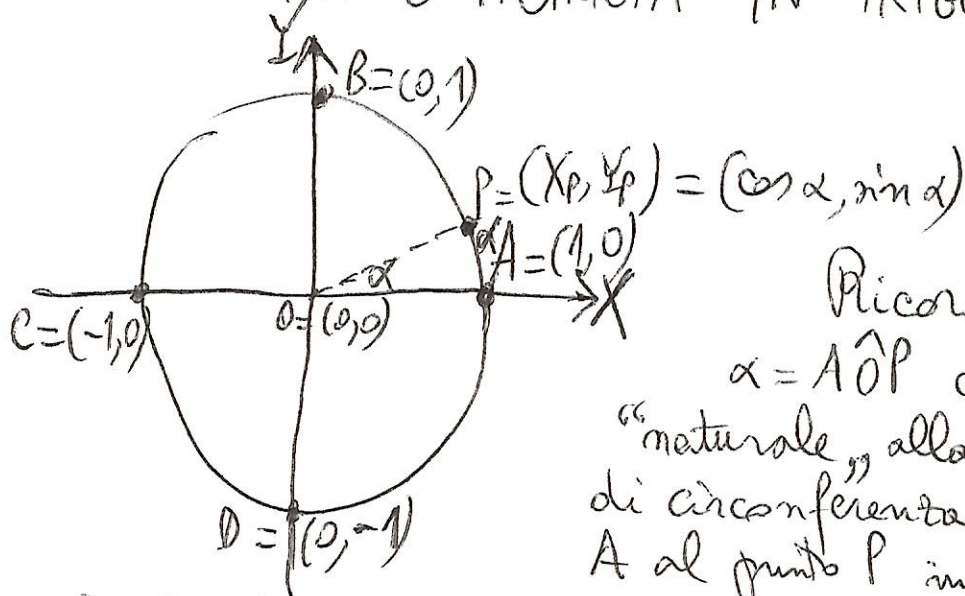 Y
B=(0,1)
P=(Xp,Yp)=(cos α, sin α)
α
A=(1,0)
α
X
C=(-1,0)
O=(0,0)
D=(0,-1)
α = AÔP
"naturale„
di circonferenza
A al punto P